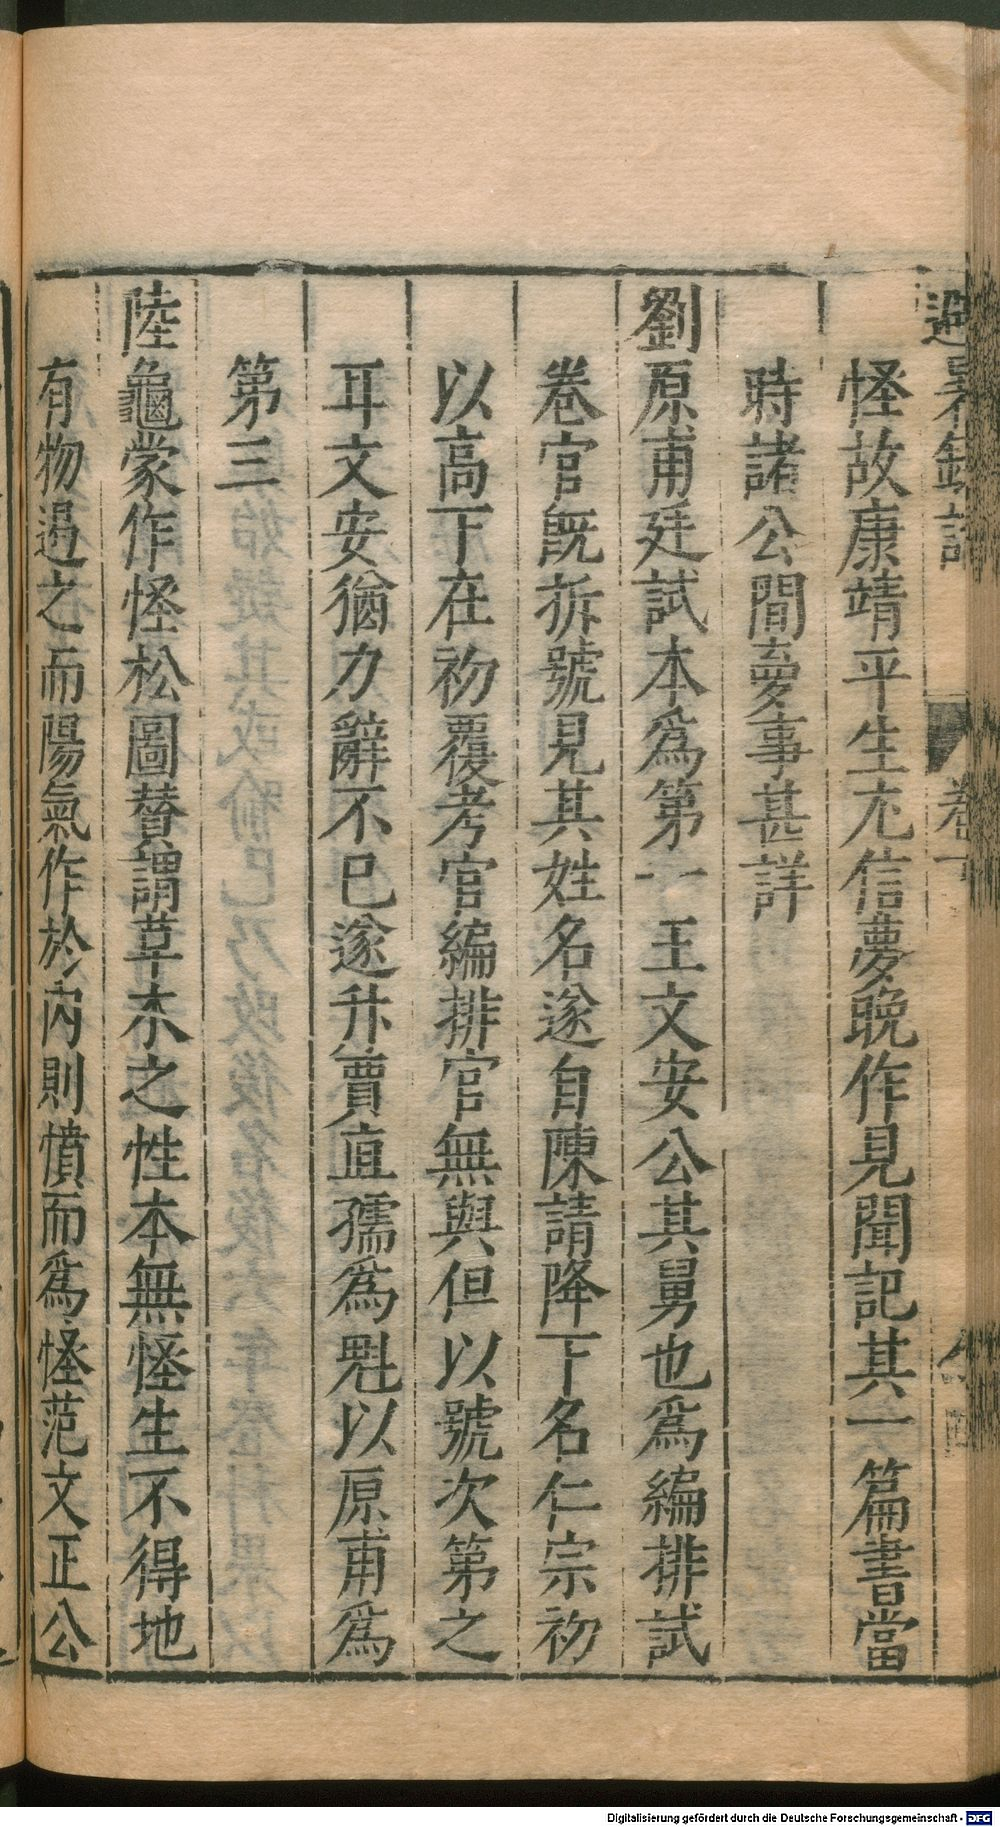 避暑錄話 卷下
怪故康靖平生尤信夢晚作見聞記其一篇書當
時諸公間夢事甚詳
劉原甫廷試本爲第一王文安公其舅也爲編排試
卷官旣拆號見其姓名遂自陳請降下名仁宗初
以高下在初覆考官編排官無與但以號次第之
耳文安猶力辭不巳遂升賈直孺爲魁以原甫爲
第三
陸龜蒙作怪松圖賛謂草木之性本無怪生不得地
有物遏之而陽氣作於内則憤而爲怪范文正公
Digitalisierung gefördert durch die Deutsche Forschungsgemeinschaft - DFG